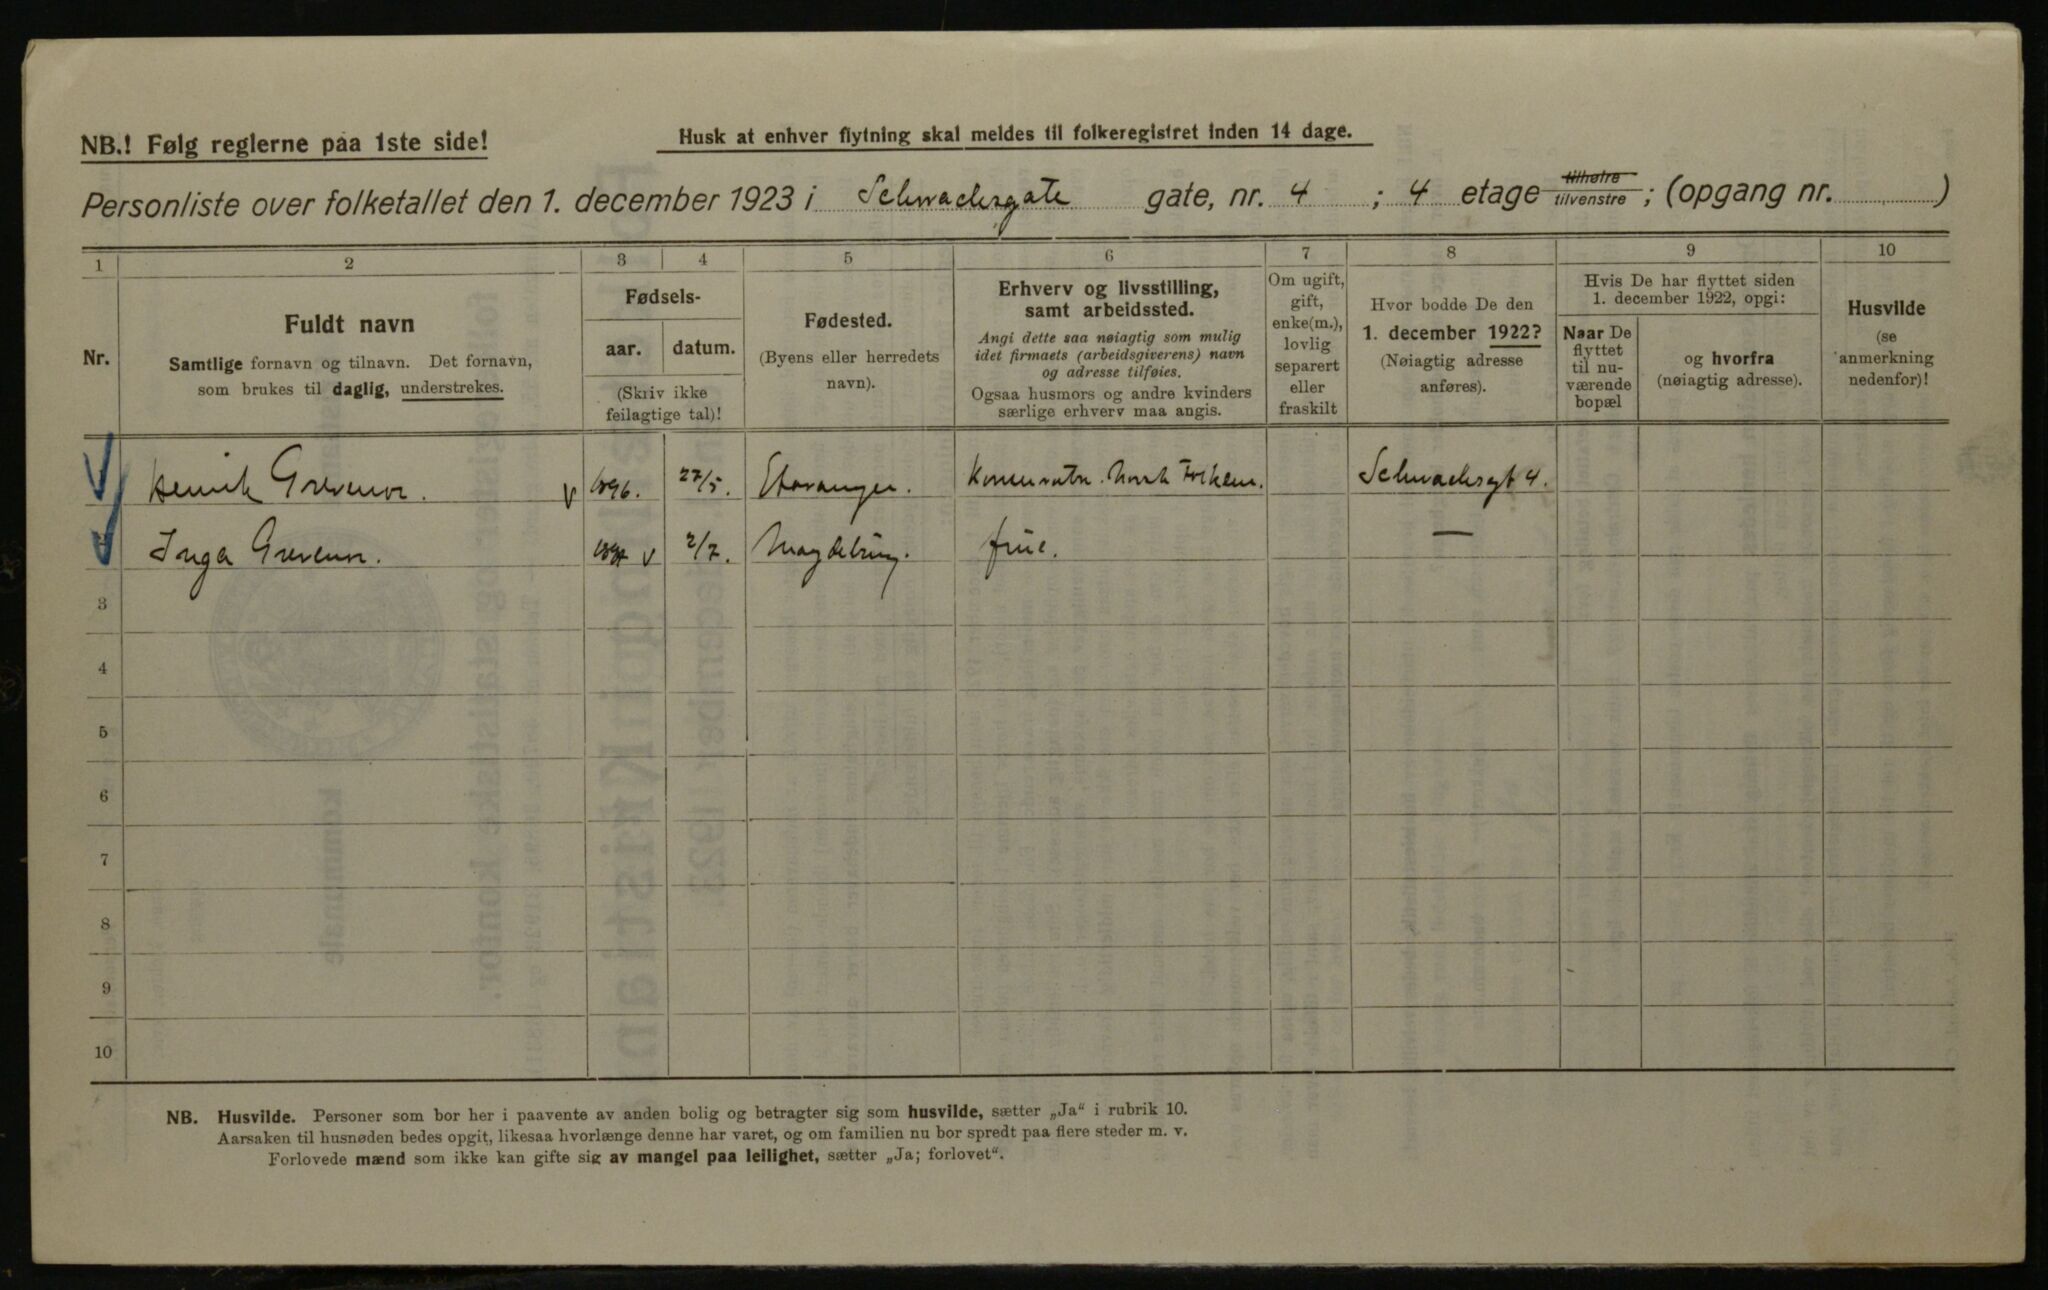 NB.! Følg reglerne paa 1ste side!
Husk at enhver flytning skal meldes til folkeregistret inden 14 dage.
Personliste over folketallet den 1. december 1923 i Schwachsgate gate, nr. 4 ; 4 etage tilhøire tilvenstre ; (opgang nr. )
1 2 3 4 5 6 7 8 9 10
Nr.
Fuldt navn
Samtlige fornavn og tilnavn. Det fornavn,
som brukes til daglig, understrekes.
Fødsels-
aar. datum.
(Skriv ikke
feilagtige tal)!
Fødested.
(Byens eller herredets
navn).
Erhverv og livsstilling,
samt arbeidssted.
Angi dette saa nøiagtig som mulig
idet firmaets (arbeidsgiverens) navn
og adresse tilføies.
Ogsaa husmors og andre kvinders
særlige erhverv maa angis.
Om ugift,
gift,
enke(m.),
lovlig
separert
eller
fraskilt
Hvor bodde De den
1. december 1922?
(Nøiagtig adresse
anføres).
Hvis De har flyttet siden
1. december 1922, opgi:
Naar De
flyttet
til nu-
værende
bopæl
og hvorfra
(nøiagtig adresse).
Husvilde
(se
anmerkning
nedenfor)!
Henrik Grevenor. v 1896. 27/5. Stavanger. Konservator. Norsk Folkem. Schwachsgt 4.
Inga Grevenor. v 2/7. Magdeburg. frue. —
3
4
5
6
7
8
9
10
NB. Husvilde. Personer som bor her i paavente av anden bolig og betragter sig som husvilde, sætter „Ja“ i rubrik 10.
Aarsaken til husnøden bedes opgit, likesaa hvorlænge denne har varet, og om familien nu bor spredt paa flere steder m. v.
Forlovede mænd som ikke kan gifte sig av mangel paa leilighet, sætter „Ja; forlovet“.